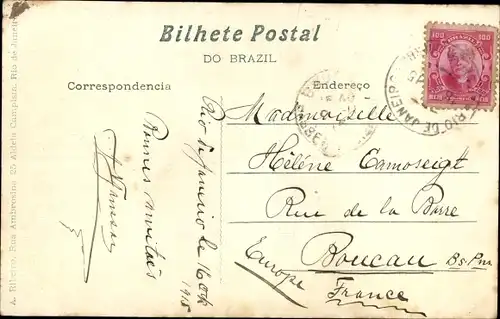 Bilhete Postal
DO BRAZIL
Correspondencia
Endereço
100 100
BRAZIL
RIO DE JANEIRO
Mademoiselle
Hélène Camoseigt
Rue de la Barre
Boucau Bs Pns
France
Europe
Rio de Janeiro le 16 Oct
1915
Bonnes amitiés
A. Ribeiro, Rua Ambrosina 25 Aldeia Campista, Rio de Janeiro